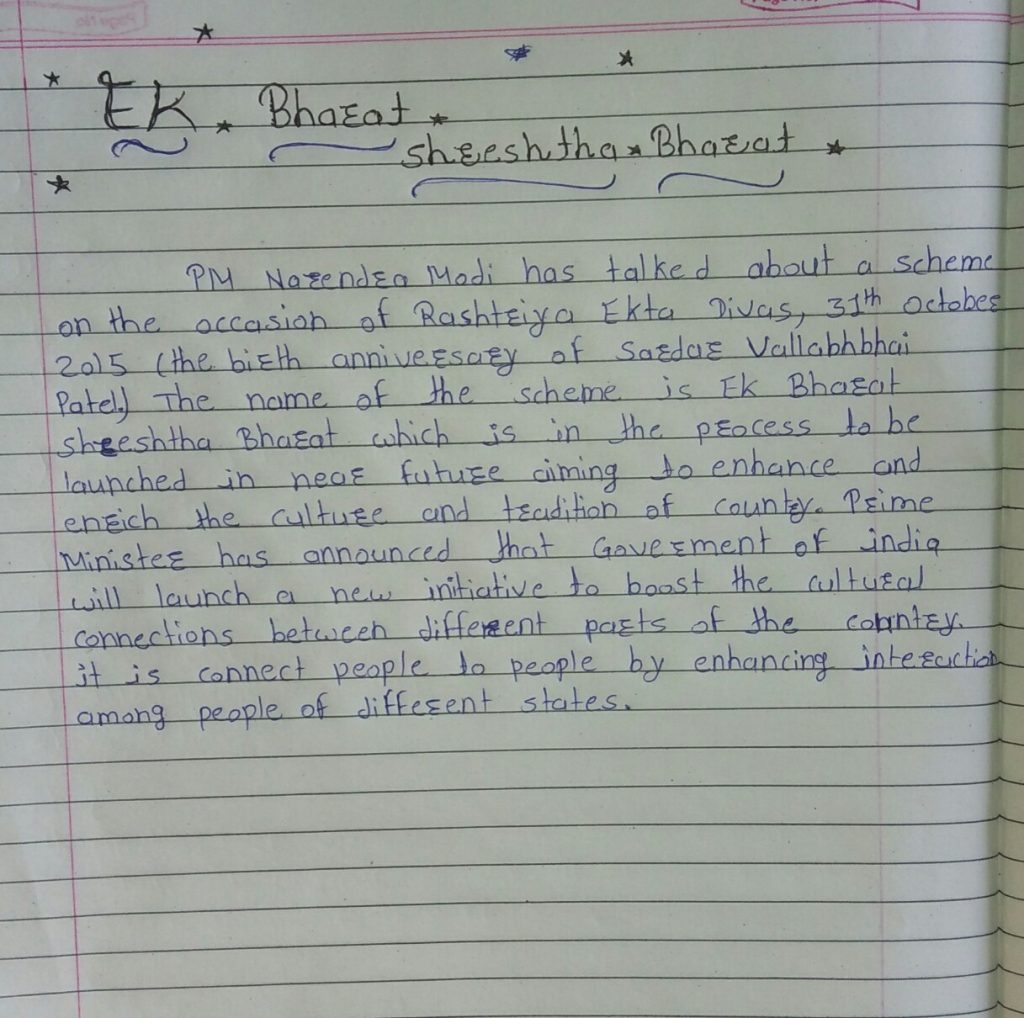 Ek Bharat
shreshtha Bharat
PM Narendra Modi has talked about a scheme
on the occasion of Rashtriya Ekta Divas, 31th october
2015 (the birth anniversary of Sardar Vallabhbhai
Patel.) The name of the scheme is Ek Bharat
shreshtha Bharat which is in the process to be
launched in near future aiming to enhance and
enrich the culture and tradition of country. Prime
Minister has announced that Goverment of india
will launch a new initiative to boost the cultural
connections between different parts of the country.
it is connect people to people by enhancing interaction
among people of different states.